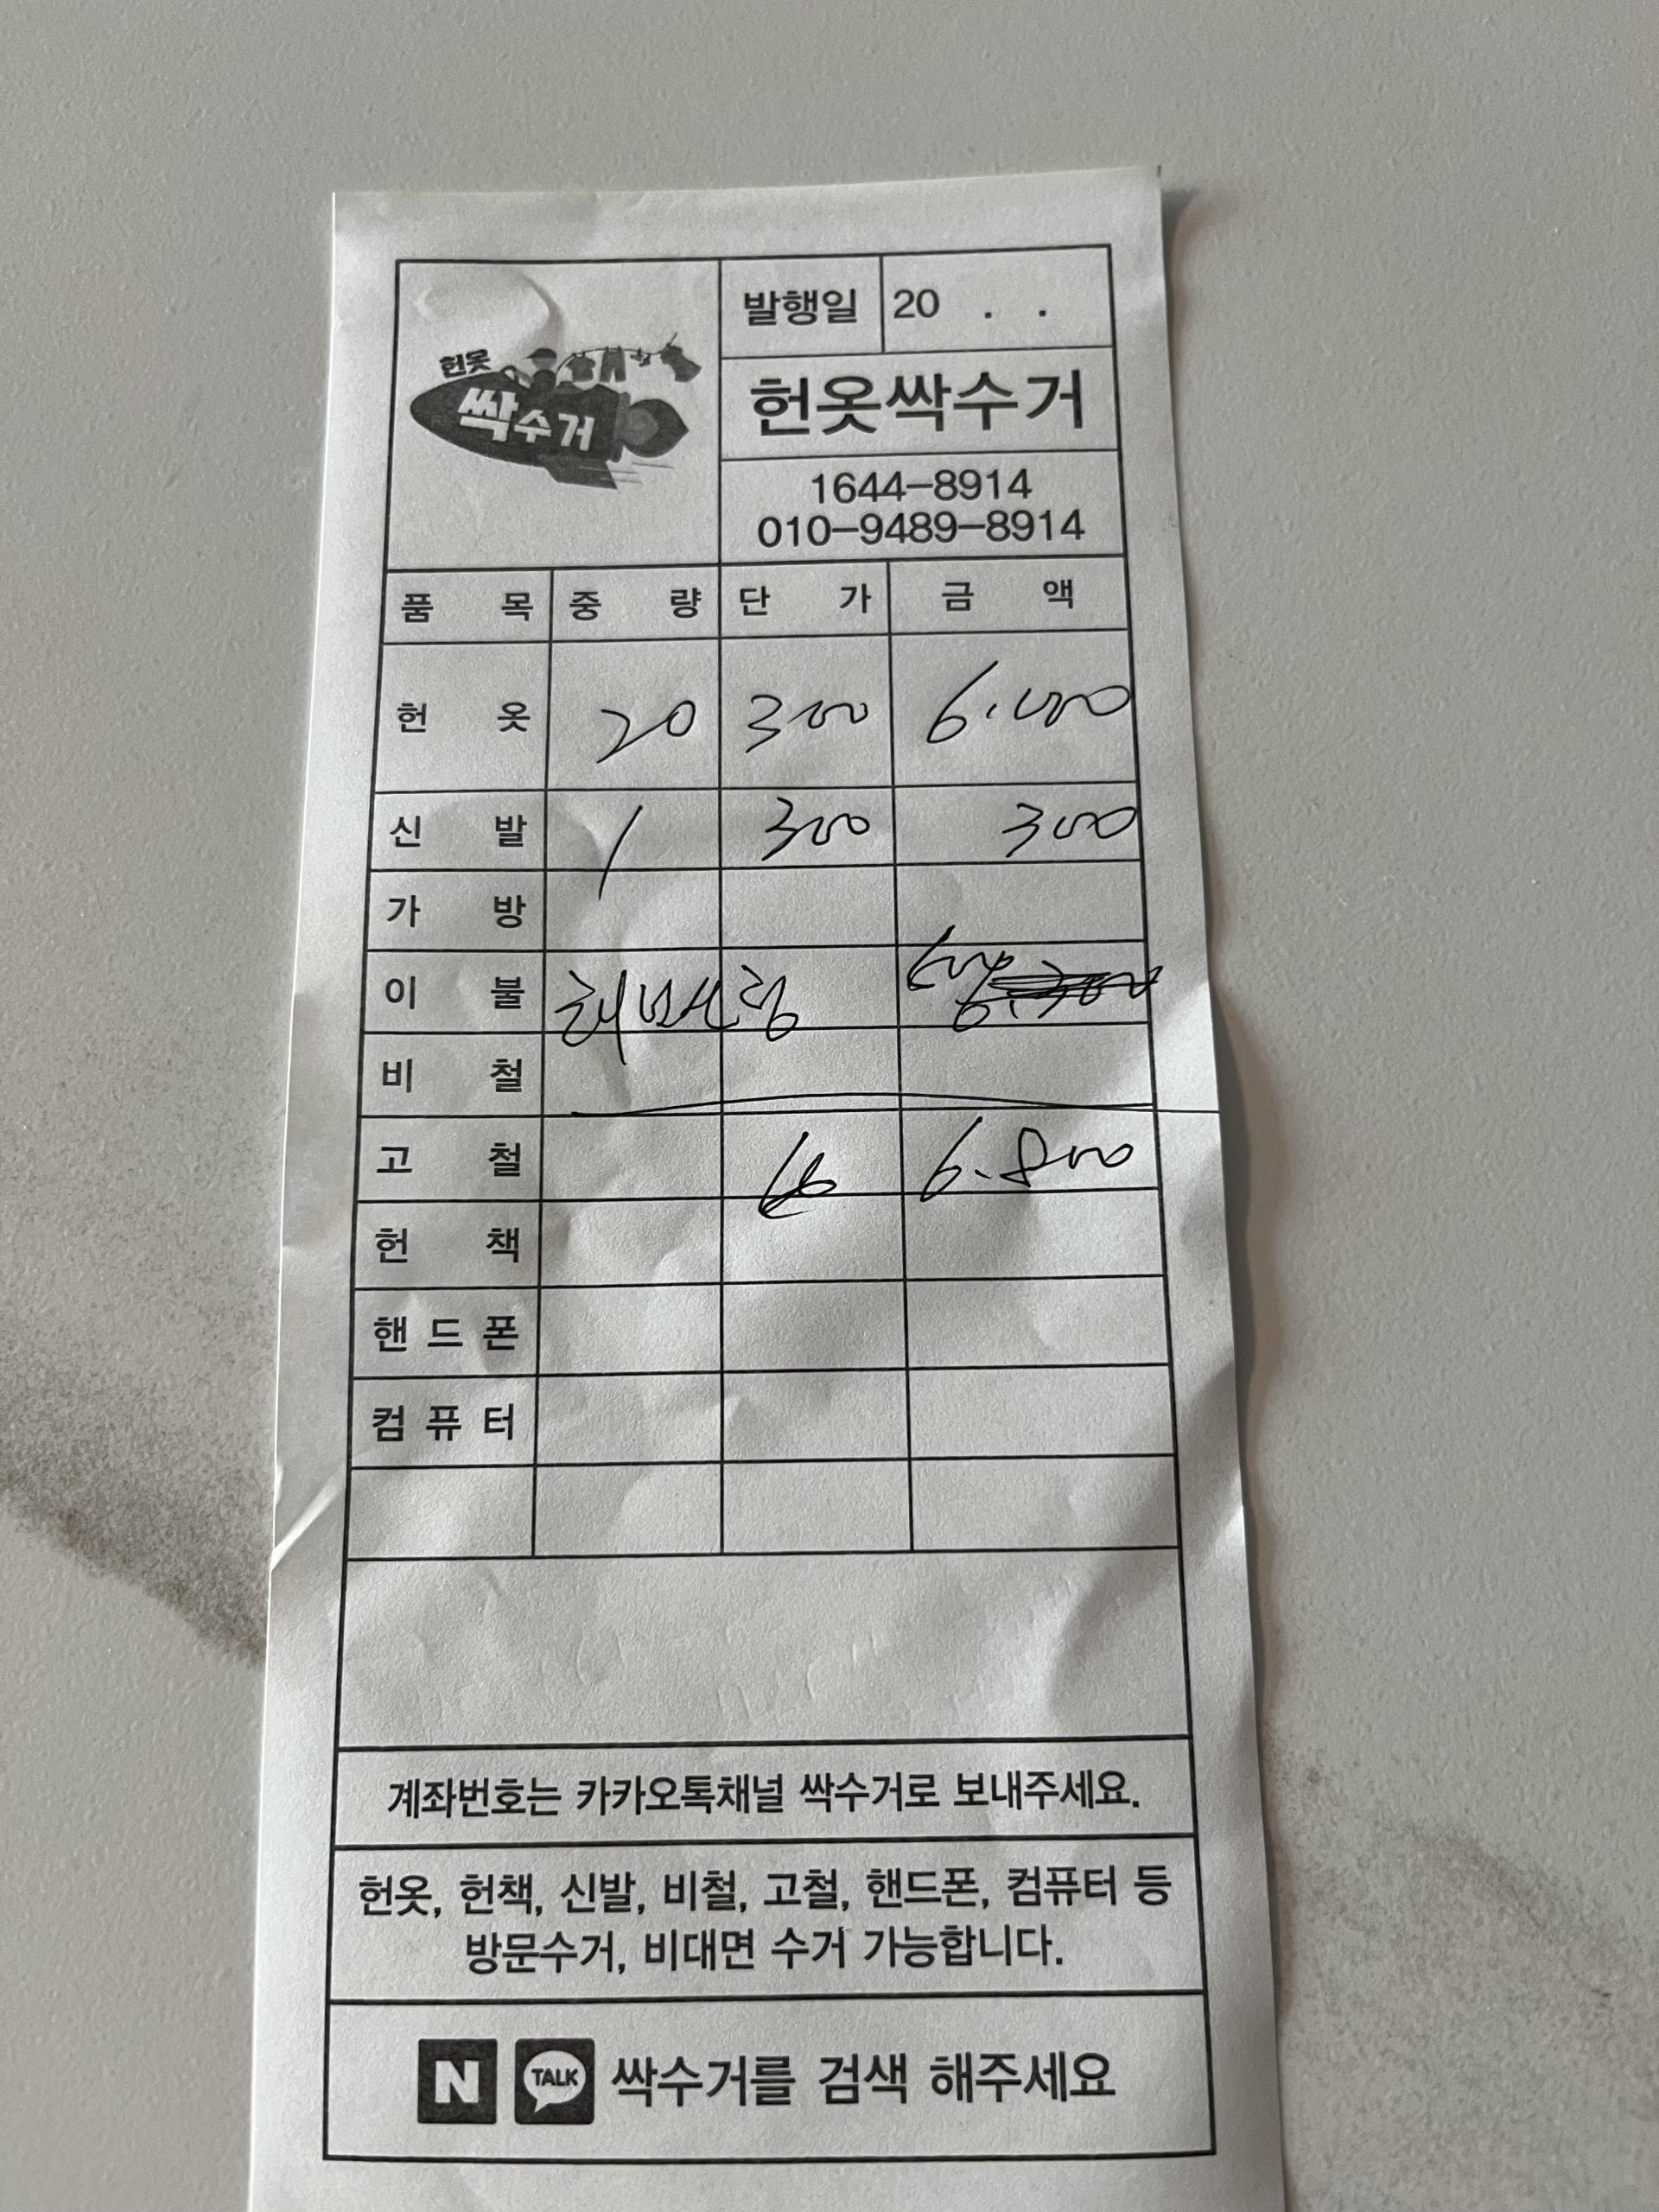 헌옷
싹수거
발행일 20 . .
헌옷싹수거
1644-8914
010-9489-8914
품 목 중 량 단 가 금 액
헌 옷 20 300 6.000
신 발 1 300 300
가 방
이 불
비 철
고 철 6.800
헌 책
핸드폰
컴퓨터
계좌번호는 카카오톡채널 싹수거로 보내주세요.
헌옷, 헌책, 신발, 비철, 고철, 핸드폰, 컴퓨터 등
방문수거, 비대면 수거 가능합니다.
N TALK 싹수거를 검색 해주세요